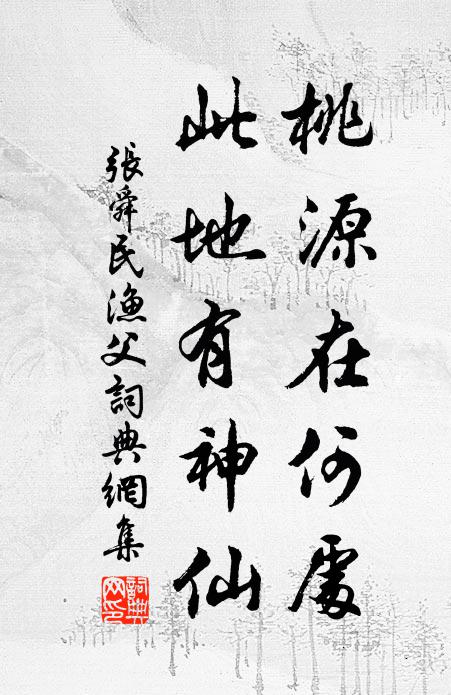 桃源在何處
此地有神仙
張舜民漁父詞典網集
詞典網印